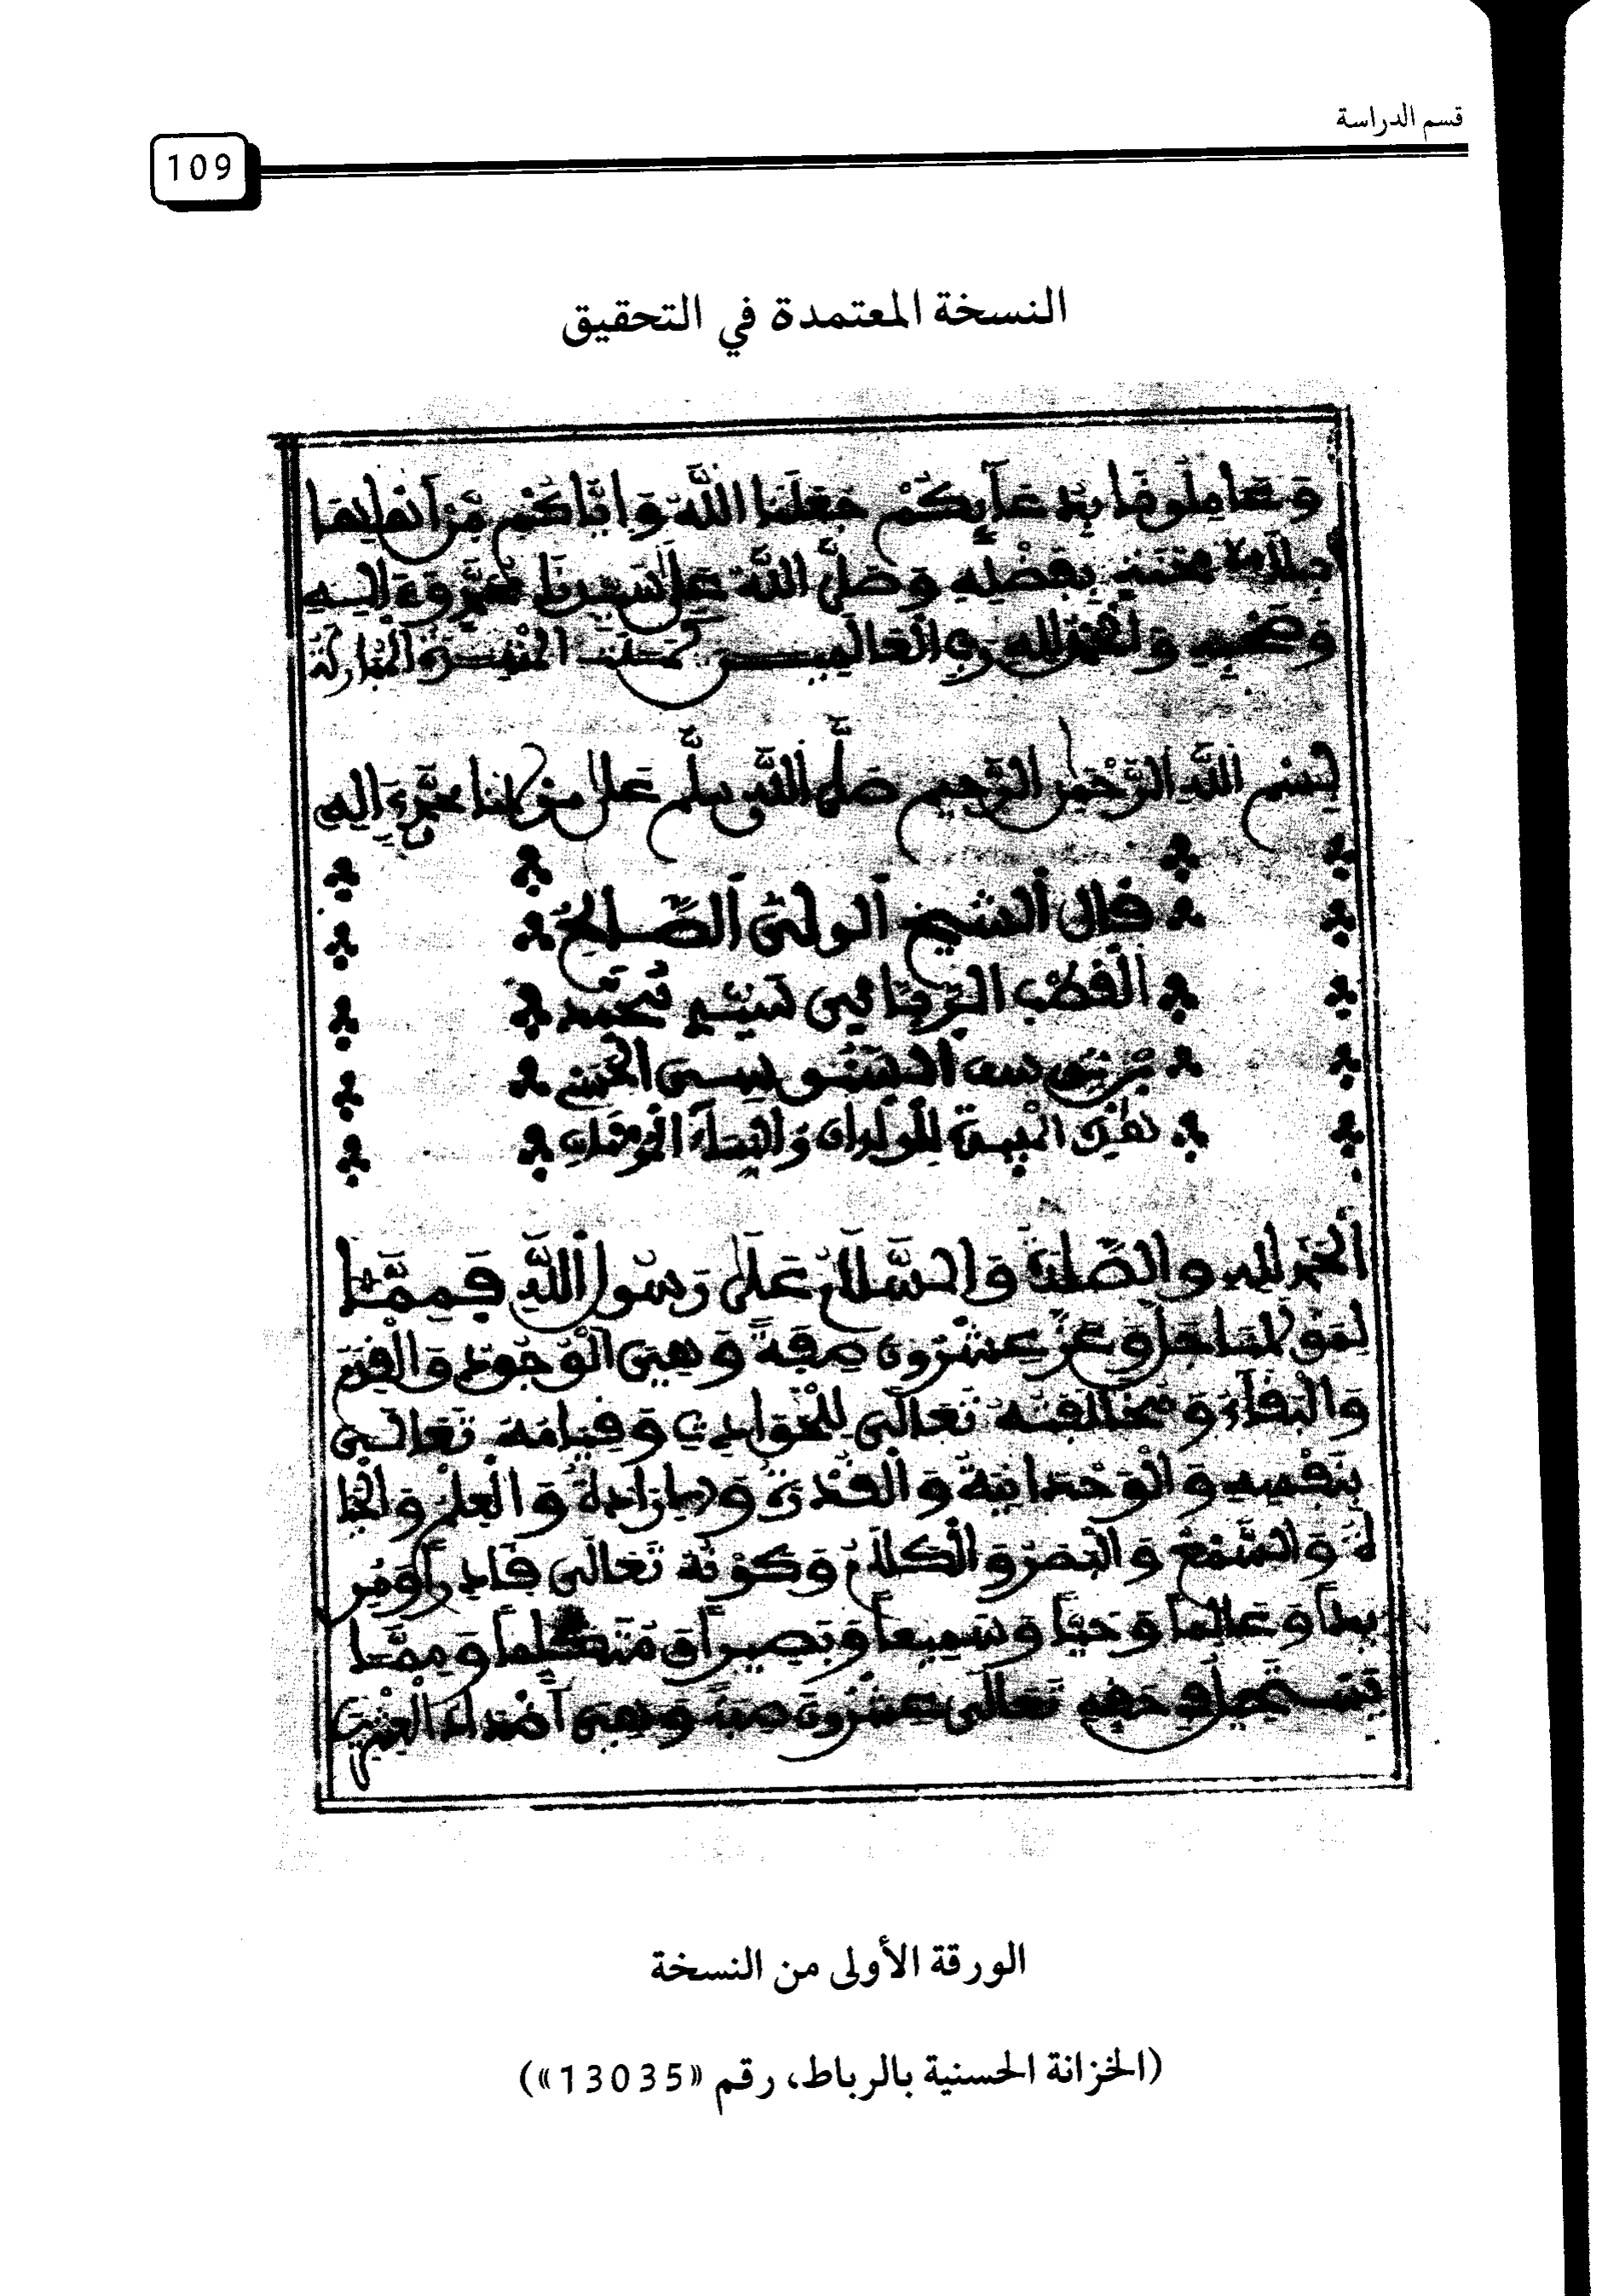 قسم الدراسة
109
النسخة المعتمدة في التحقيق
وعاملوها بدعآيكم جعلنا الله وإياكم من
بفضله وصلى الله على سيدنا محمد وءاله
وصحبه والحمد لله رب العالمين كملت المباركة
بسم الله الرحمن الرحيم صلى الله وسلم على مولانا محمد وءاله
قال الشيخ الولي الصالح
القطب سيدي محمد
بن يوسف السنوسي الحسني
للولدان والنساء المومنات
الحمد لله والصلاة والسلام على رسول الله فمما
لمولانا جل وعز عشرون صفة وهي الوجود والقدم
والبقاء ومخالفته تعالى للحوادث وقيامه تعالى
بنفسه والوحدانية والقدرة والإرادة والعلم والحيا
ة والسمع والبصر والكلام وكونه تعالى قادرا ومر
يدا وعالما وحيا وسميعا وبصيرا ومتكلما ومما
يستحيل في حقه تعالى عشرون صفة وهي أضداد العشرين
الورقة الأولى من النسخة
(الخزانة الحسنية بالرباط، رقم «13035»)